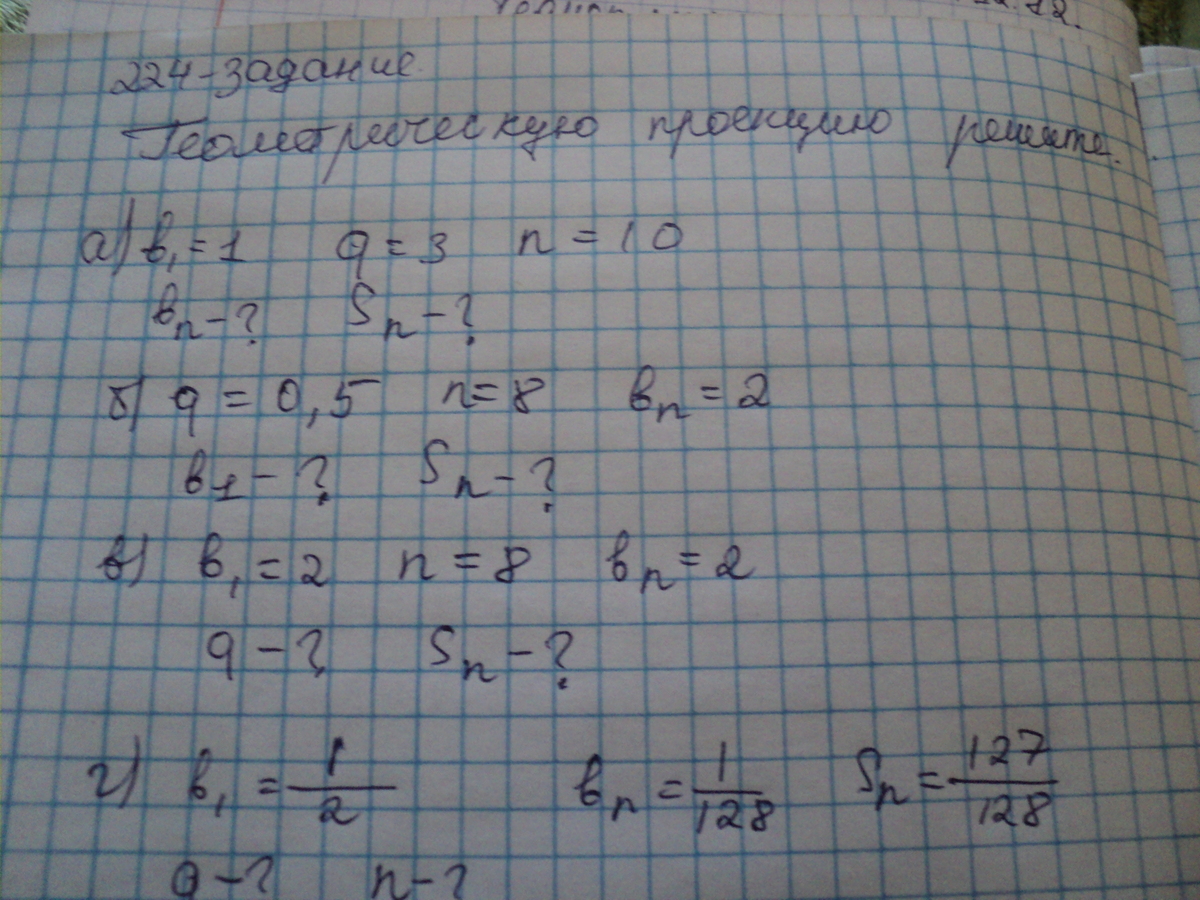 12.
224-задание.
Геометрическую проекцию решите.
а) в₁ = 1 q = 3 n = 10
вₙ - ? Sₙ - ?
б) q = 0,5 n = 8 вₙ = 2
в₁ - ? Sₙ - ?
в) в₁ = 2 n = 8 вₙ = 2
q - ? Sₙ - ?
г) в₁ = 1/2 вₙ = 1/128 Sₙ = 127/128
q - ? n - ?